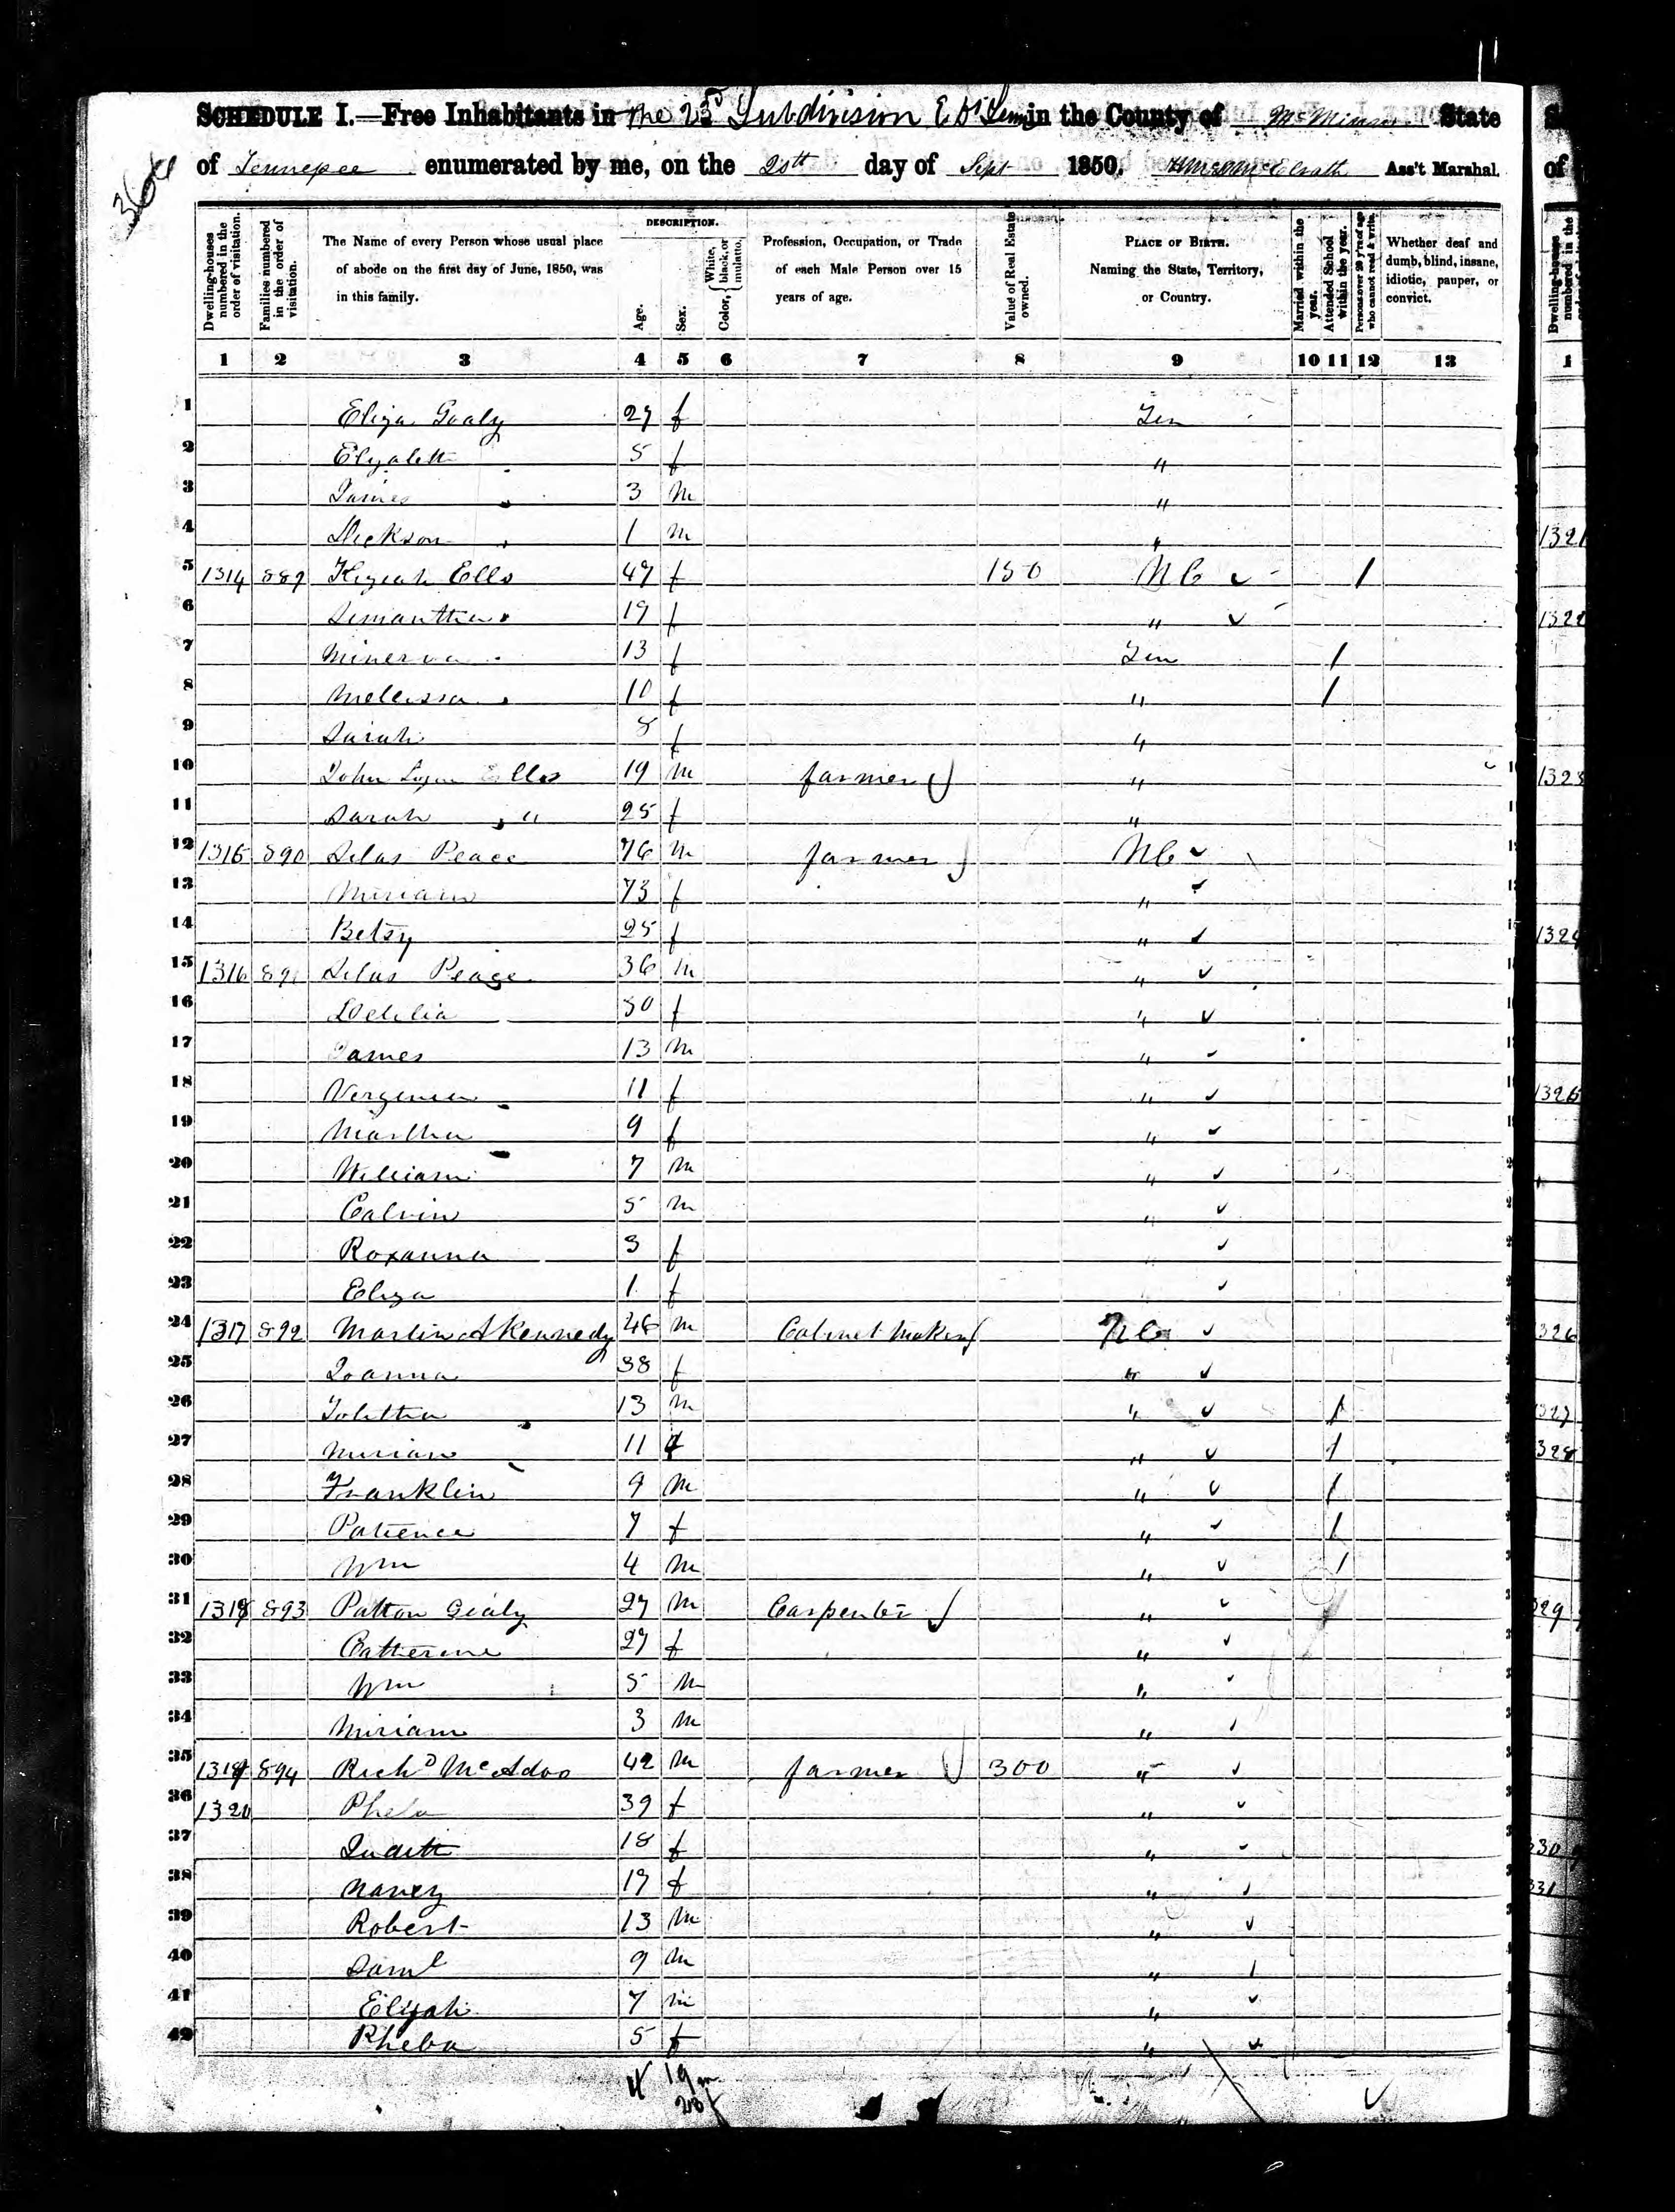 SCHEDULE I.—Free Inhabitants in the 23d Subdivision E Dt Tenn in the County of McMinn State
of Tennessee enumerated by me, on the 20th day of Sept 1850. McElrath Ass't Marshal.
Dwelling-houses numbered in the order of visitation.
Families numbered in the order of visitation.
The Name of every Person whose usual place of abode on the first day of June, 1850, was in this family.
DESCRIPTION.
Age.
Sex.
Color, { White, black, or mulatto.
Profession, Occupation, or Trade of each Male Person over 15 years of age.
Value of Real Estate owned.
PLACE OF BIRTH. Naming the State, Territory, or Country.
Married within the year.
Attended School within the year.
Persons over 20 y'rs of age who cannot read & write.
Whether deaf and dumb, blind, insane, idiotic, pauper, or convict.
1 2 3 4 5 6 7 8 9 10 11 12 13
1 Eliza Goaly 27 f Ten
2 Elizabeth 5 f "
3 James 3 m "
4 Dickson 1 m "
5 1314 889 Keziah Ells 47 f 150 NC 1
6 Simantha " 19 f "
7 Minerva 13 f Ten 1
8 Mellissa 10 f " 1
9 Sarah 8 f "
10 John Ells 19 m farmer "
11 Sarah " 25 f "
12 1315 890 Silas Peace 76 m farmer NC
13 Miriam 73 f "
14 Betsy 25 f "
15 1316 891 Silas Peace 36 m "
16 30 f "
17 James 13 m "
18 Verginia 11 f "
19 Martha 9 f "
20 William 7 m "
21 Calvin 5 m "
22 Roxanna 3 f
23 Eliza 1 f
24 1317 892 Martin A Kennedy 48 m Cabinet Maker NC
25 Joanna 38 f "
26 13 m " 1
27 Miriam 11 f " 1
28 Franklin 9 m " 1
29 Patience 7 f " 1
30 Wm 4 m " 1
31 1318 893 Patton Gealy 27 m Carpenter "
32 Catherine 27 f "
33 Wm 5 m "
34 Miriam 3 m "
35 1319 894 Richd McAdoo 42 m farmer 300 "
36 1320 39 f "
37 Judith 18 f "
38 Nancy 17 f "
39 Robert 13 m "
40 Saml 9 m "
41 Elijah 7 m "
42 Pheba 5 f "
19 m
23 f